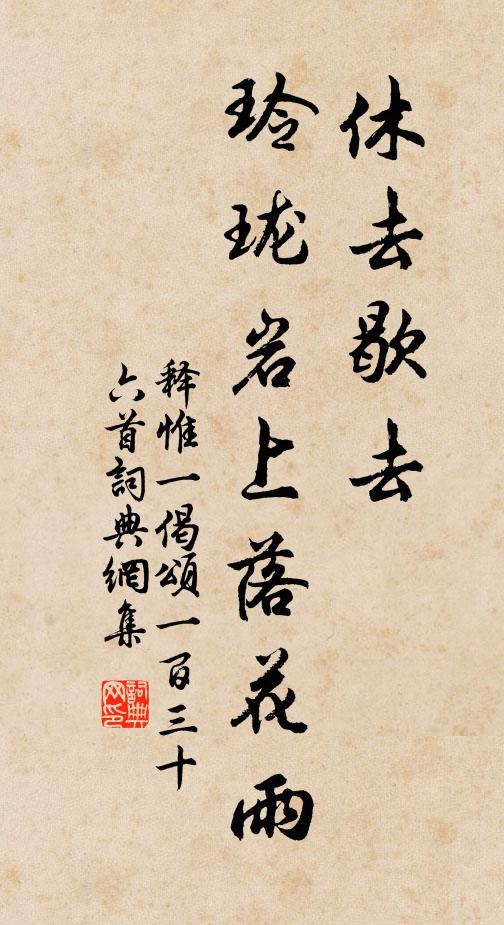 休去歇去
玲珑岩上落花雨
释惟一偈頌一百三十
六首詞典網集
詞典
网印